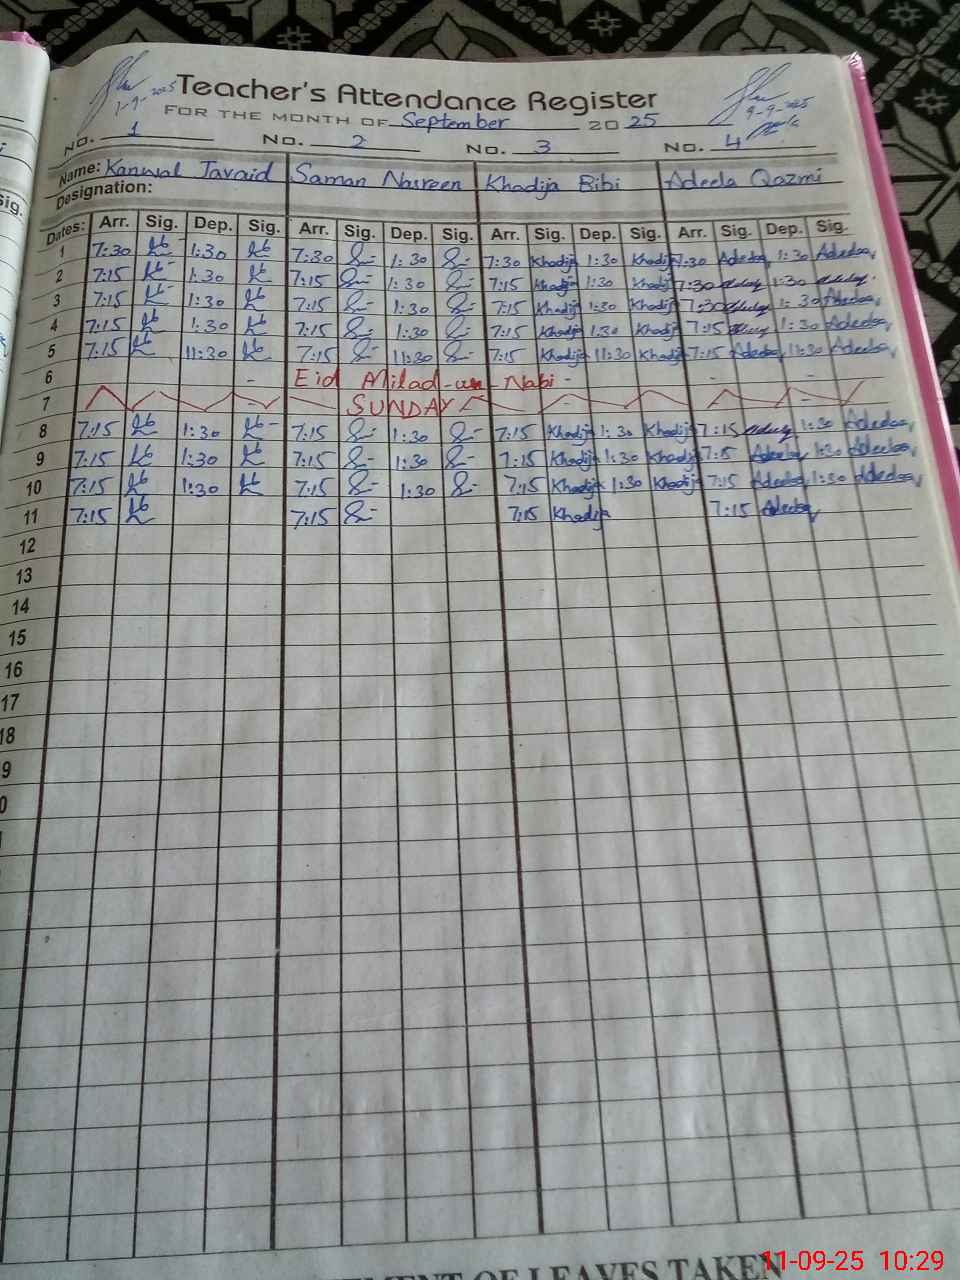 1-9-2025
Teacher's Attendance Register
9-9-2025
FOR THE MONTH OF September 2025
No. 1 No. 2 No. 3 No. 4
Name: Kanwal Javaid Saman Nasreen Khadija Bibi Adeela Qazmi
Designation:
Dates: Arr. Sig. Dep. Sig. Arr. Sig. Dep. Sig. Arr. Sig. Dep. Sig. Arr. Sig. Dep. Sig.
1 7:30 1:30 7:30 1:30 7:30 Khadija 1:30 Khadija 7:30 Adeela 1:30 Adeela
2 7:15 1:30 7:15 1:30 7:15 Khadija 1:30 Khadija 7:30 1:30
3 7:15 1:30 7:15 1:30 7:15 Khadija 1:30 Khadija 7:30 1:30 Adeela
4 7:15 1:30 7:15 1:30 7:15 Khadija 1:30 Khadija 7:15 1:30 Adeela
5 7:15 11:30 7:15 11:30 7:15 Khadija 11:30 Khadija 7:15 Adeela 11:30 Adeela
6 - Eid Milad-un-Nabi - - -
7 SUNDAY
8 7:15 1:30 7:15 1:30 7:15 Khadija 1:30 Khadija 7:15 1:30 Adeela
9 7:15 1:30 7:15 1:30 7:15 Khadija 1:30 Khadija 7:15 Adeela 1:30 Adeela
10 7:15 1:30 7:15 1:30 7:15 Khadija 1:30 Khadija 7:15 Adeela 1:30 Adeela
11 7:15 7:15 7:15 Khadija 7:15 Adeela
12
13
14
15
16
17
18
9
0
OF LEAVES TAKEN
11-09-25 10:29